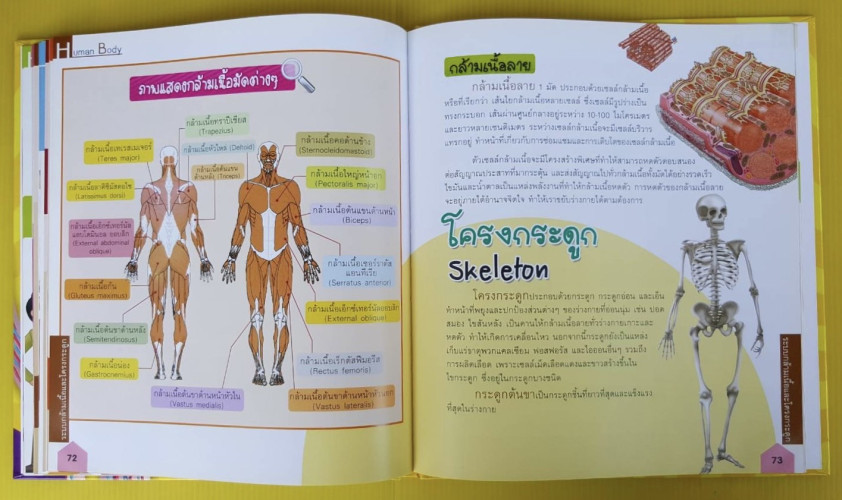 Human Body
ภาพแสดงกล้ามเนื้อมัดต่างๆ
กล้ามเนื้อทราปีเซียส
(Trapezius)
กล้ามเนื้อเทเรสเมเจอร์
(Teres major)
กล้ามเนื้อหัวไหล่ (Deltoid)
กล้ามเนื้อต้นแขน
ด้านหลัง (Triceps)
กล้ามเนื้อลาติซิมัสดอไซ
(Latissimus dorsi)
กล้ามเนื้อเอ็กซ์เทอร์นัล
แอบโดมินอล ออบลิก
(External abdominal
oblique)
กล้ามเนื้อก้น
(Gluteus maximus)
กล้ามเนื้อต้นขาด้านหลัง
(Semitendinosus)
กล้ามเนื้อน่อง
(Gastrocnemius)
กล้ามเนื้อต้นขาด้านหน้าหัวใน
(Vastus medialis)
กล้ามเนื้อคอด้านข้าง
(Sternocleidomastoid)
กล้ามเนื้อใหญ่หน้าอก
(Pectoralis major)
กล้ามเนื้อต้นแขนด้านหน้า
(Biceps)
กล้ามเนื้อเซอร์ราตัส
แอนทีเรีย
(Serratus anterior)
กล้ามเนื้อเอ็กซ์เทอร์นัลออบลิก
(External oblique)
กล้ามเนื้อเร็กตัสฟีมอริส
(Rectus femoris)
กล้ามเนื้อต้นขาด้านหน้าหัวนอก
(Vastus lateralis)
ระบบกล้ามเนื้อและโครงกระดูก
72
กล้ามเนื้อลาย
กล้ามเนื้อลาย 1 มัด ประกอบด้วยเซลล์กล้ามเนื้อ
หรือที่เรียกว่า เส้นใยกล้ามเนื้อหลายเซลล์ ซึ่งเซลล์มีรูปร่างเป็น
ทรงกระบอก เส้นผ่านศูนย์กลางอยู่ระหว่าง 10-100 ไมโครเมตร
และยาวหลายเซนติเมตร ระหว่างเซลล์กล้ามเนื้อจะมีเซลล์บริวาร
แทรกอยู่ ทำหน้าที่เกี่ยวกับการซ่อมแซมและการเติบโตของเซลล์กล้ามเนื้อ
ตัวเซลล์กล้ามเนื้อจะมีโครงสร้างพิเศษที่ทำให้สามารถหดตัวตอบสนอง
ต่อสัญญาณประสาทที่มากระตุ้น และส่งสัญญาณไปทั่วกล้ามเนื้อทั้งมัดได้อย่างรวดเร็ว
ไขมันและน้ำตาลเป็นแหล่งพลังงานที่ทำให้กล้ามเนื้อหดตัว การหดตัวของกล้ามเนื้อลาย
จะอยู่ภายใต้อำนาจจิตใจ ทำให้เราขยับร่างกายได้ตามต้องการ
โครงกระดูก
Skeleton
โครงกระดูกประกอบด้วยกระดูก กระดูกอ่อน และเอ็น
ทำหน้าที่พยุงและปกป้องส่วนต่างๆ ของร่างกายที่อ่อนนุ่ม เช่น ปอด
สมอง ไขสันหลัง เป็นคานให้กล้ามเนื้อลายทั่วร่างกายเกาะและ
หดตัว ทำให้เกิดการเคลื่อนไหว นอกจากนี้กระดูกยังเป็นแหล่ง
เก็บแร่ธาตุพวกแคลเซียม ฟอสฟอรัส และไอออนอื่นๆ รวมถึง
การผลิตเลือด เพราะเซลล์เม็ดเลือดแดงและขาวสร้างขึ้นใน
ไขกระดูก ซึ่งอยู่ในกระดูกบางชนิด
กระดูกต้นขาเป็นกระดูกชิ้นที่ยาวที่สุดและแข็งแรง
ที่สุดในร่างกาย
ระบบกล้ามเนื้อและโครงกระดูก
73